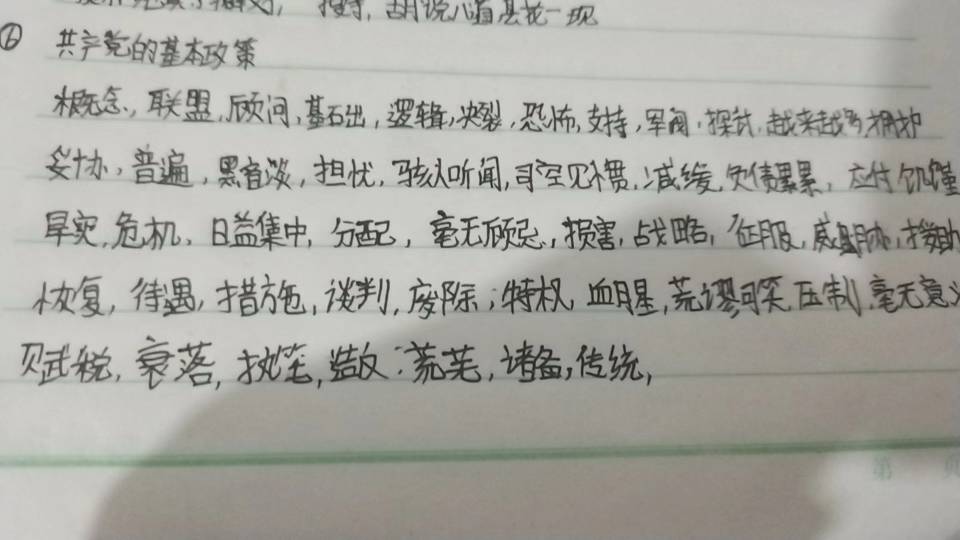 胡说八道 昙花一现
⑥ 共产党的基本政策
概念, 联盟, 顾问, 基础, 逻辑, 决裂, 恐怖, 支持, 军阀, 探讨, 越来越多 拥护
妥协, 普遍, 黑暗淡, 担忧, 骇人听闻, 司空见惯, 减缓, 负债累累, 应付 饥馑
早实, 危机, 日益集中, 分配, 毫无顾忌, 损害, 战略, 征服, 威胁, 援助
恢复, 待遇, 措施, 谈判, 废除, 特权 血腥, 荒谬可笑 压制, 毫无意义
赋税, 衰落, 执笔, 造反, 荒芜, 储备, 传统,
第 页